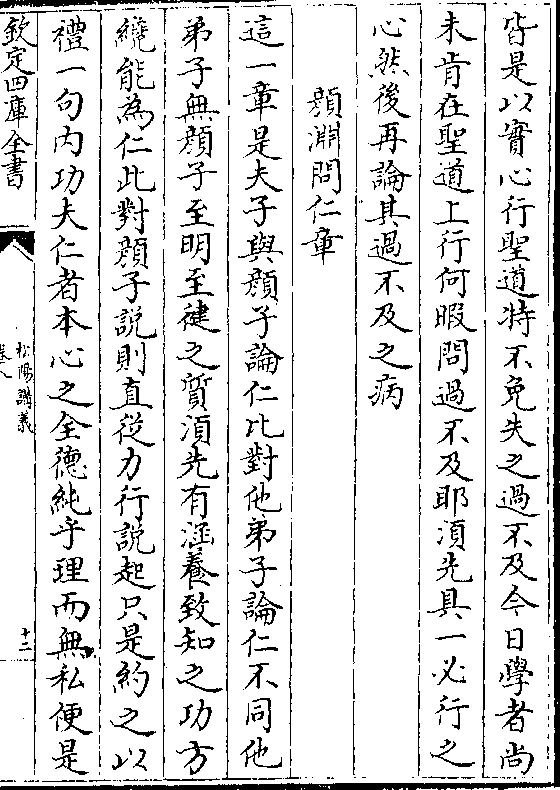 皆是以實心行聖道特不免失之過不及今日學者尚
未肯在聖道上行何暇問過不及耶須先具一必行之
心然後再論其過不及之病
顔淵問仁章
這一章是夫子與顔子論仁比對他弟子論仁不同他
弟子無顔子至明至健之質須先有涵養致知之功方
纔能為仁此對顔子說則直從力行說起只是約之以
禮一句内功夫仁者本心之全德純乎理而無私便是
欽定四庫全書
松陽講義
卷八
十二